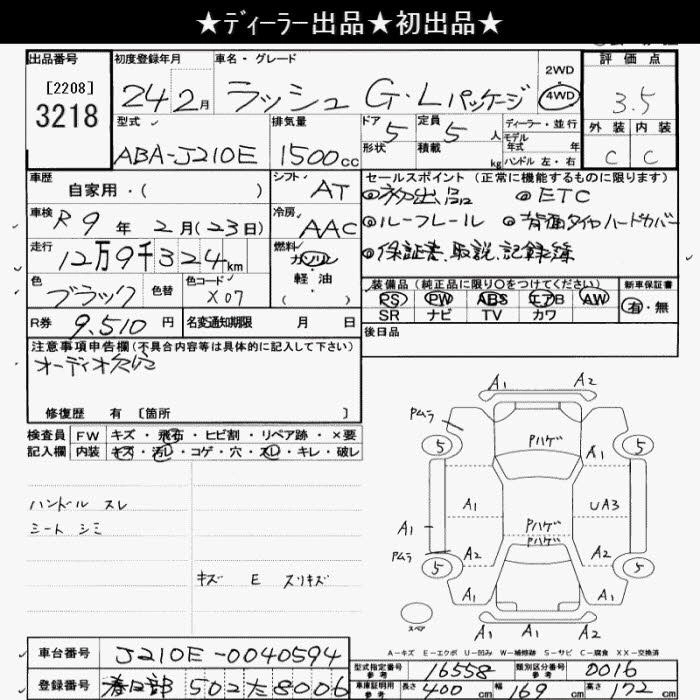 ★ディーラー出品★初出品★
出品番号
[2208]
3218
初度登録年月
24 2月
車名・グレード
ラッシュ G・Lパッケージ
2WD
4WD
評価点
3.5
外装 内装
C C
型式
ABA-J210E
排気量
1500cc
ドア 5
形状
定員 5 人
積載 kg
ディーラー・並行
モデル
年式 年
ハンドル 左・右
車歴
自家用・( )
シフト AT
セールスポイント (正常に機能するものに限ります)
◎初出品 ◎ETC
◎ルーフレール ◎背面タイヤハードカバー
◎保証書、取説、記録簿
車検 R9年2月(23日)
冷房 AAC
走行 12万9千324km
燃料
ガソリン
軽油
( )
色 ブラック 色替
色コード X07
装備品 (純正品に限り○をつけてください)
PS PW ABS エアB AW
SR ナビ TV カワ
新車保証書
有・無
R券 9,510円
名変通知期限 月 日
後日品
注意事項申告欄(不具合内容等は具体的に記入して下さい)
オーディオ欠品
修復歴 有 [箇所 ]
検査員
記入欄
FW キズ・飛石・ヒビ割・リペア跡・×要
内装 キズ・汚レ・コゲ・穴・スレ・キレ・破レ
ハンドル スレ
シート シミ
キズ E スリキズ
A1 A2
Pムラ
5 5
Pハゲ
A1
A1 UA3
A1
Pハゲ
Pハゲ
Pムラ
A2 A2
5 5
A1 A1
A1 A2
スペア
A-キズ E-エクボ U-凹み W-補修跡 S-サビ C-腐食 XX-交換済
車台番号 J210E-0040594
登録番号 春日部 502 た 8006
型式指定番号
参考
16558
類別区分番号
参考
0016
車庫証明用
参考
長さ 400 cm
幅 169 cm
高さ 172 cm